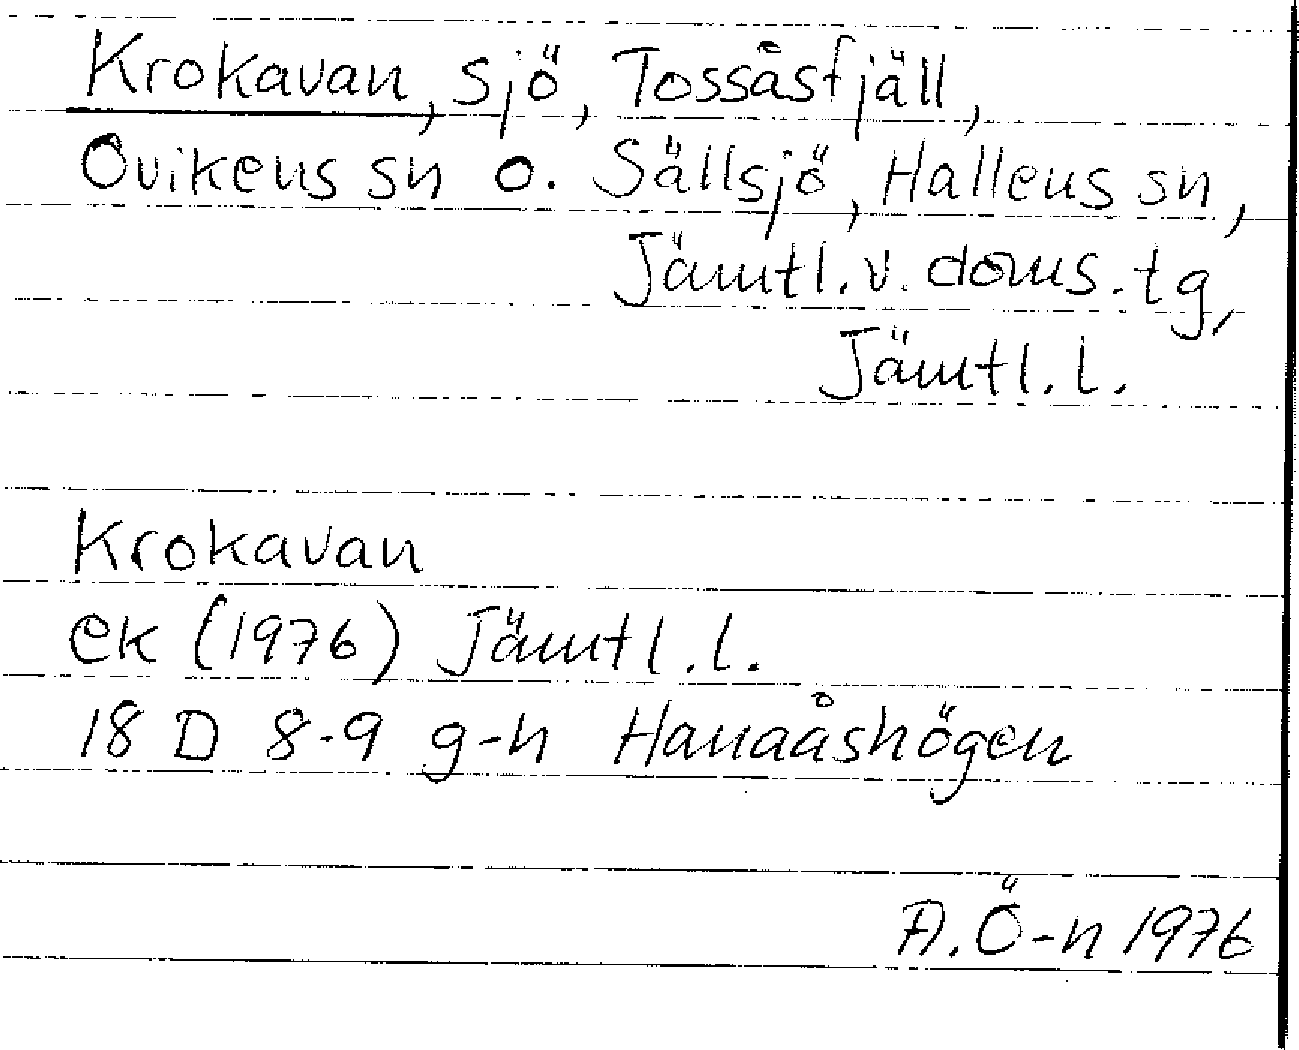 Krokavan, sjö, Tossåsfjäll,
Ovikens sn o. Sällsjö, Hallens sn,
Jämtl. v. doms. tg,
Jämtl. l.
Krokavan
ek (1976) Jämtl. l.
18 D 8-9 g-h Hanaåshögen
A. Ö-n 1976